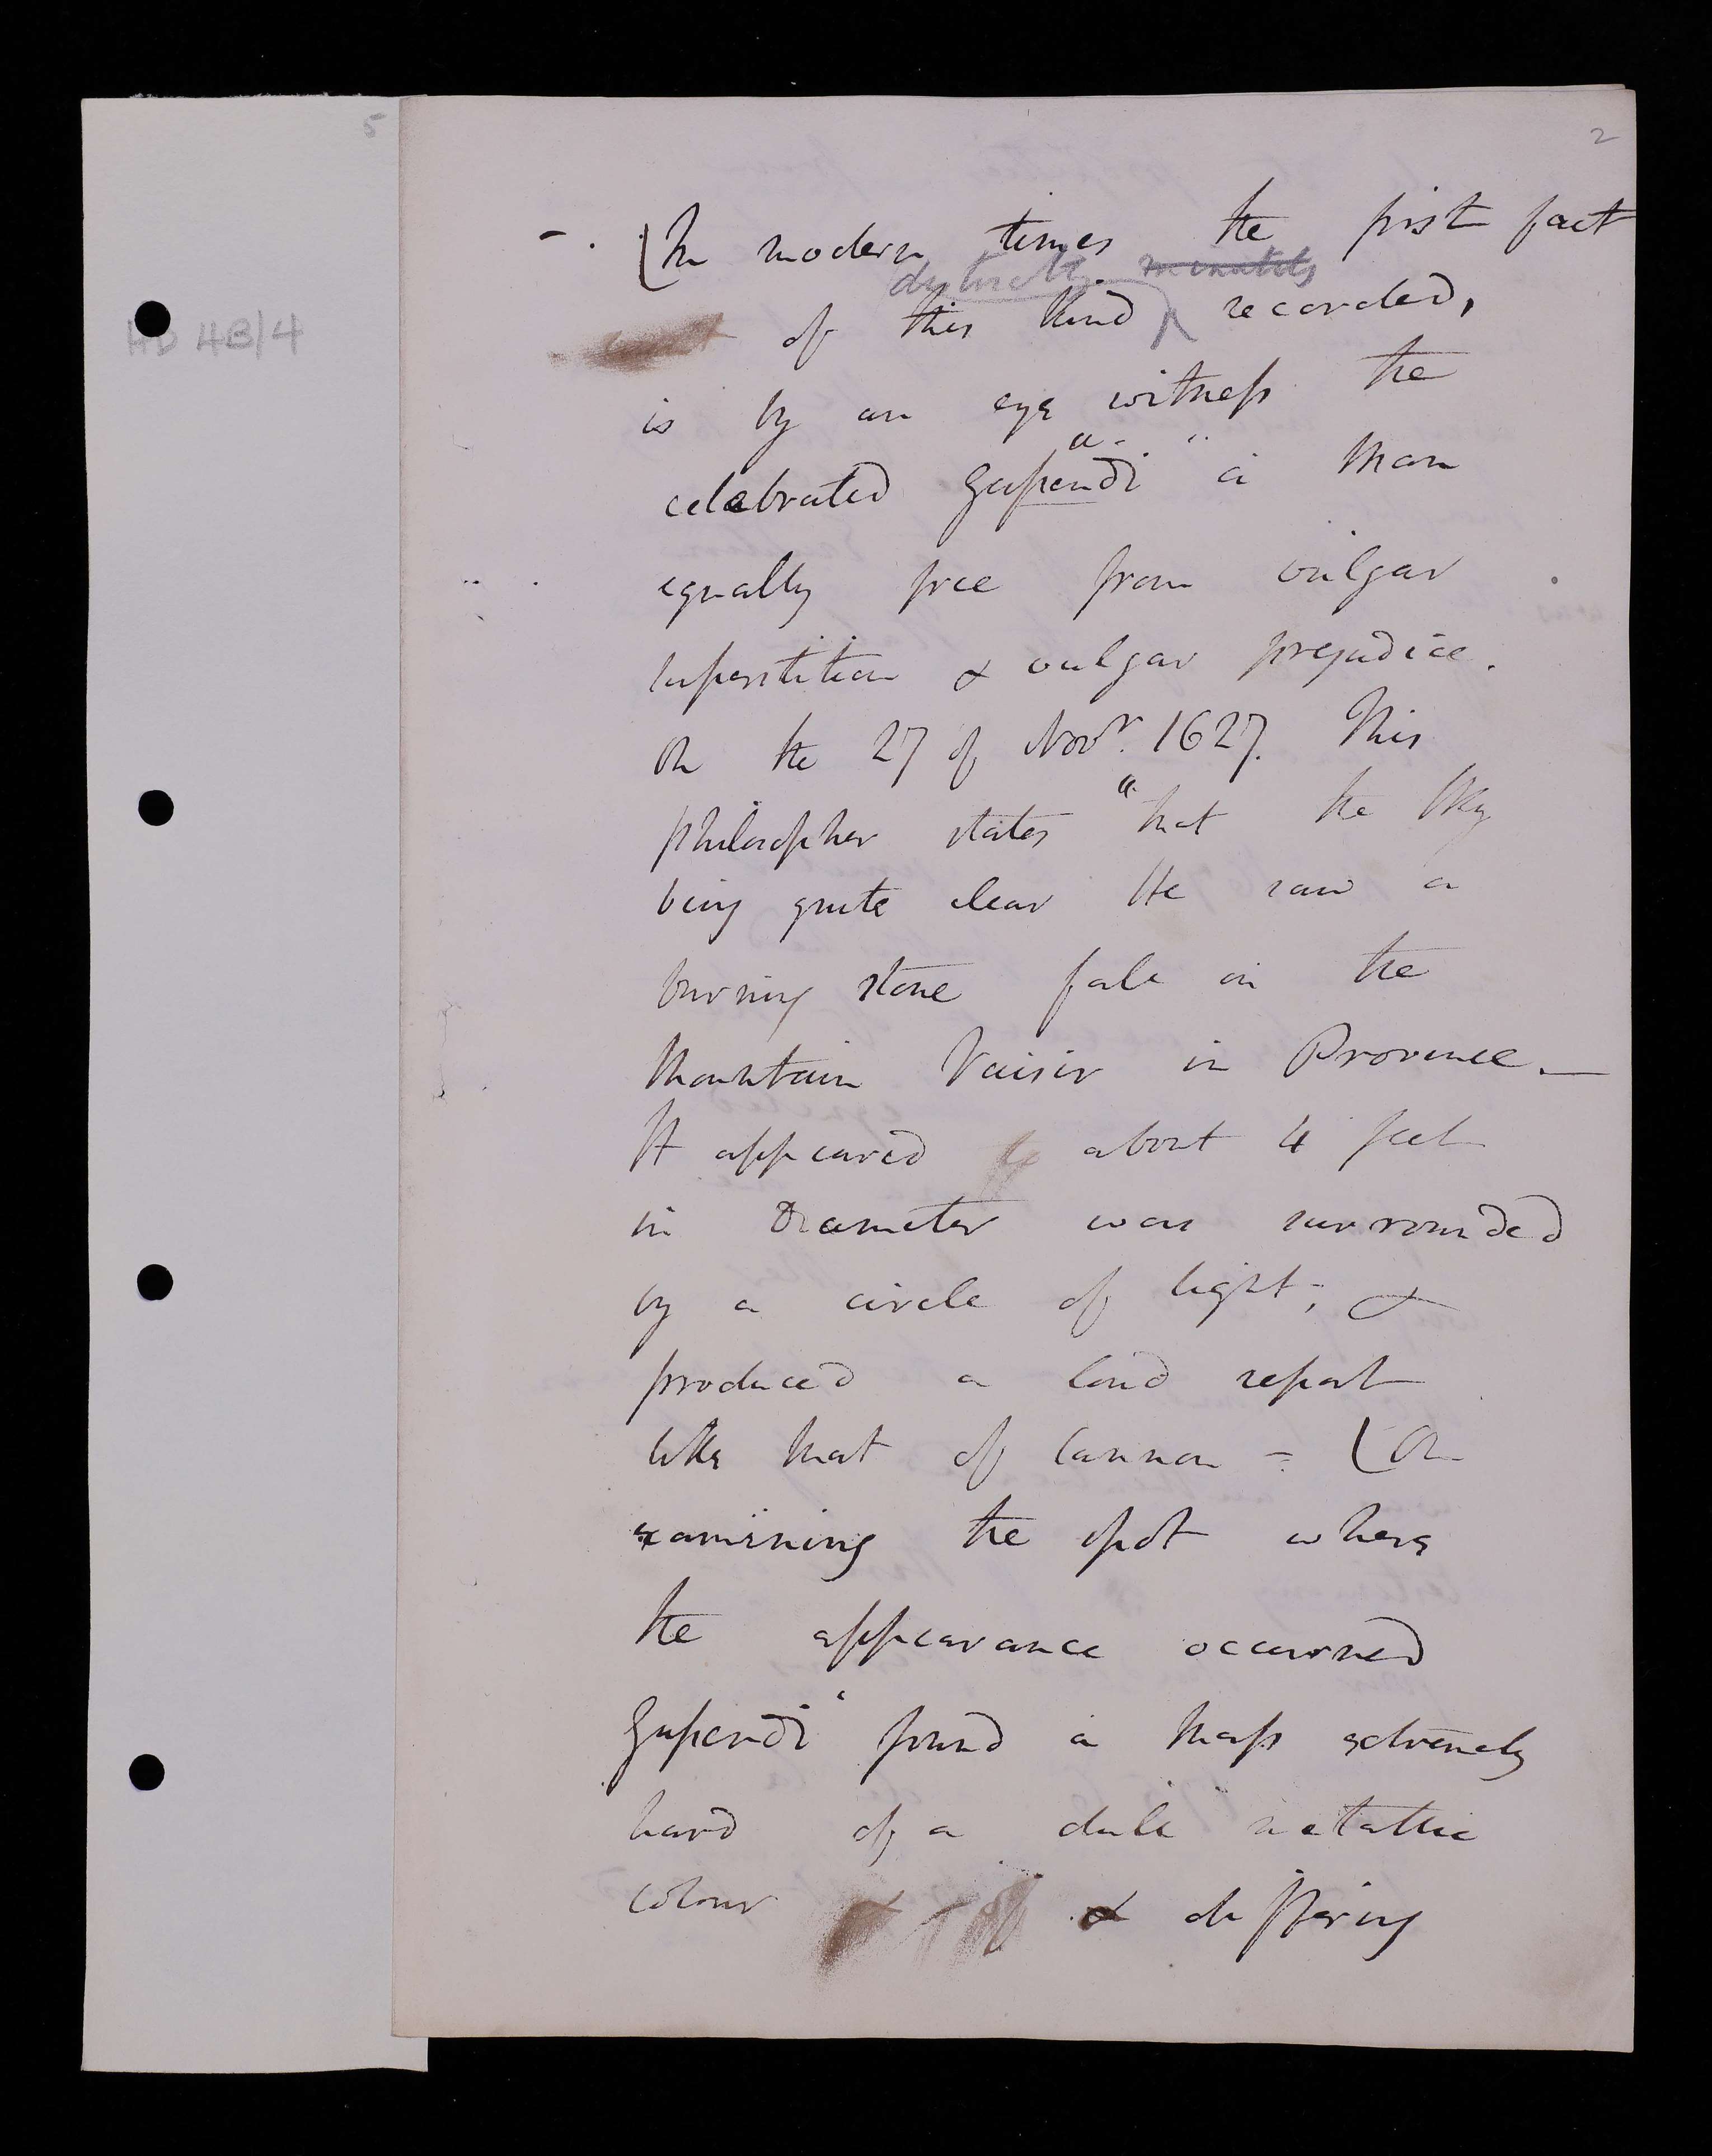 5
2
HD 4B/4
- . (In modern times the first fact
distinctly minutely
of this kind recorded,
is by an eye witness the
celebrated Gassendi a man
equally free from vulgar
superstition & vulgar prejudice.
On the 27 of Novr. 1627. This
philosopher states "that the sky
being quite clear He saw a
burning stone fall on the
Mountain Vaisir in Provence. —
It appeared to about 4 feet
in Diameter was surrounded
by a circle of light; &
produced a loud report
like that of Cannon - (On
examining the spot where
the appearance occurred
Gassendi found a mass extremely
hard of a dull metallic
colour & differing